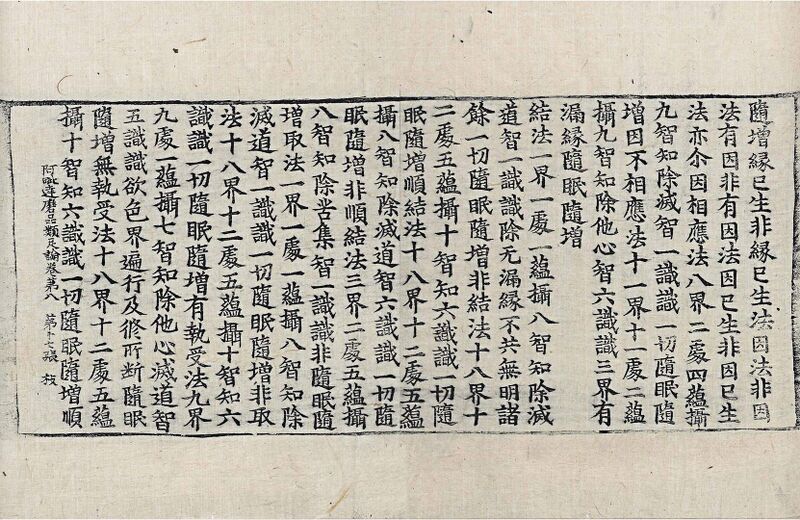 隨增縁已生非縁已生法因法非因
法有因非有因法因已生非因已生
法亦尒因相應法八界二處四蘊攝
九智知除滅智一識識一切隨眠隨
增因不相應法十一界十一處二蘊
攝九智知除他心智六識識三界有
漏縁隨眠隨增
結法一界一處一蘊攝八智知除滅
道智一識識除无漏縁不共無明諸
餘一切隨眠隨增非結法十八界十
二處五蘊攝十智知六識識一切隨
眠隨增順結法十八界十二處五蘊
攝八智知除滅道智六識識一切隨
眠隨增非順結法三界二處五蘊攝
八智知除苦集智一識識非隨眠隨
增取法一界一處一蘊攝八智知除
滅道智一識識一切隨眠隨增非取
法十八界十二處五蘊攝十智知六
識識一切隨眠隨增有執受法九界
九處一蘊攝七智知除他心滅道智
五識識欲色界遍行及修所斷隨眠
隨增無執受法十八界十二處五蘊
攝十智知六識識一切隨眠隨增順
阿毗達磨品類足論卷第八 第十七張 枝